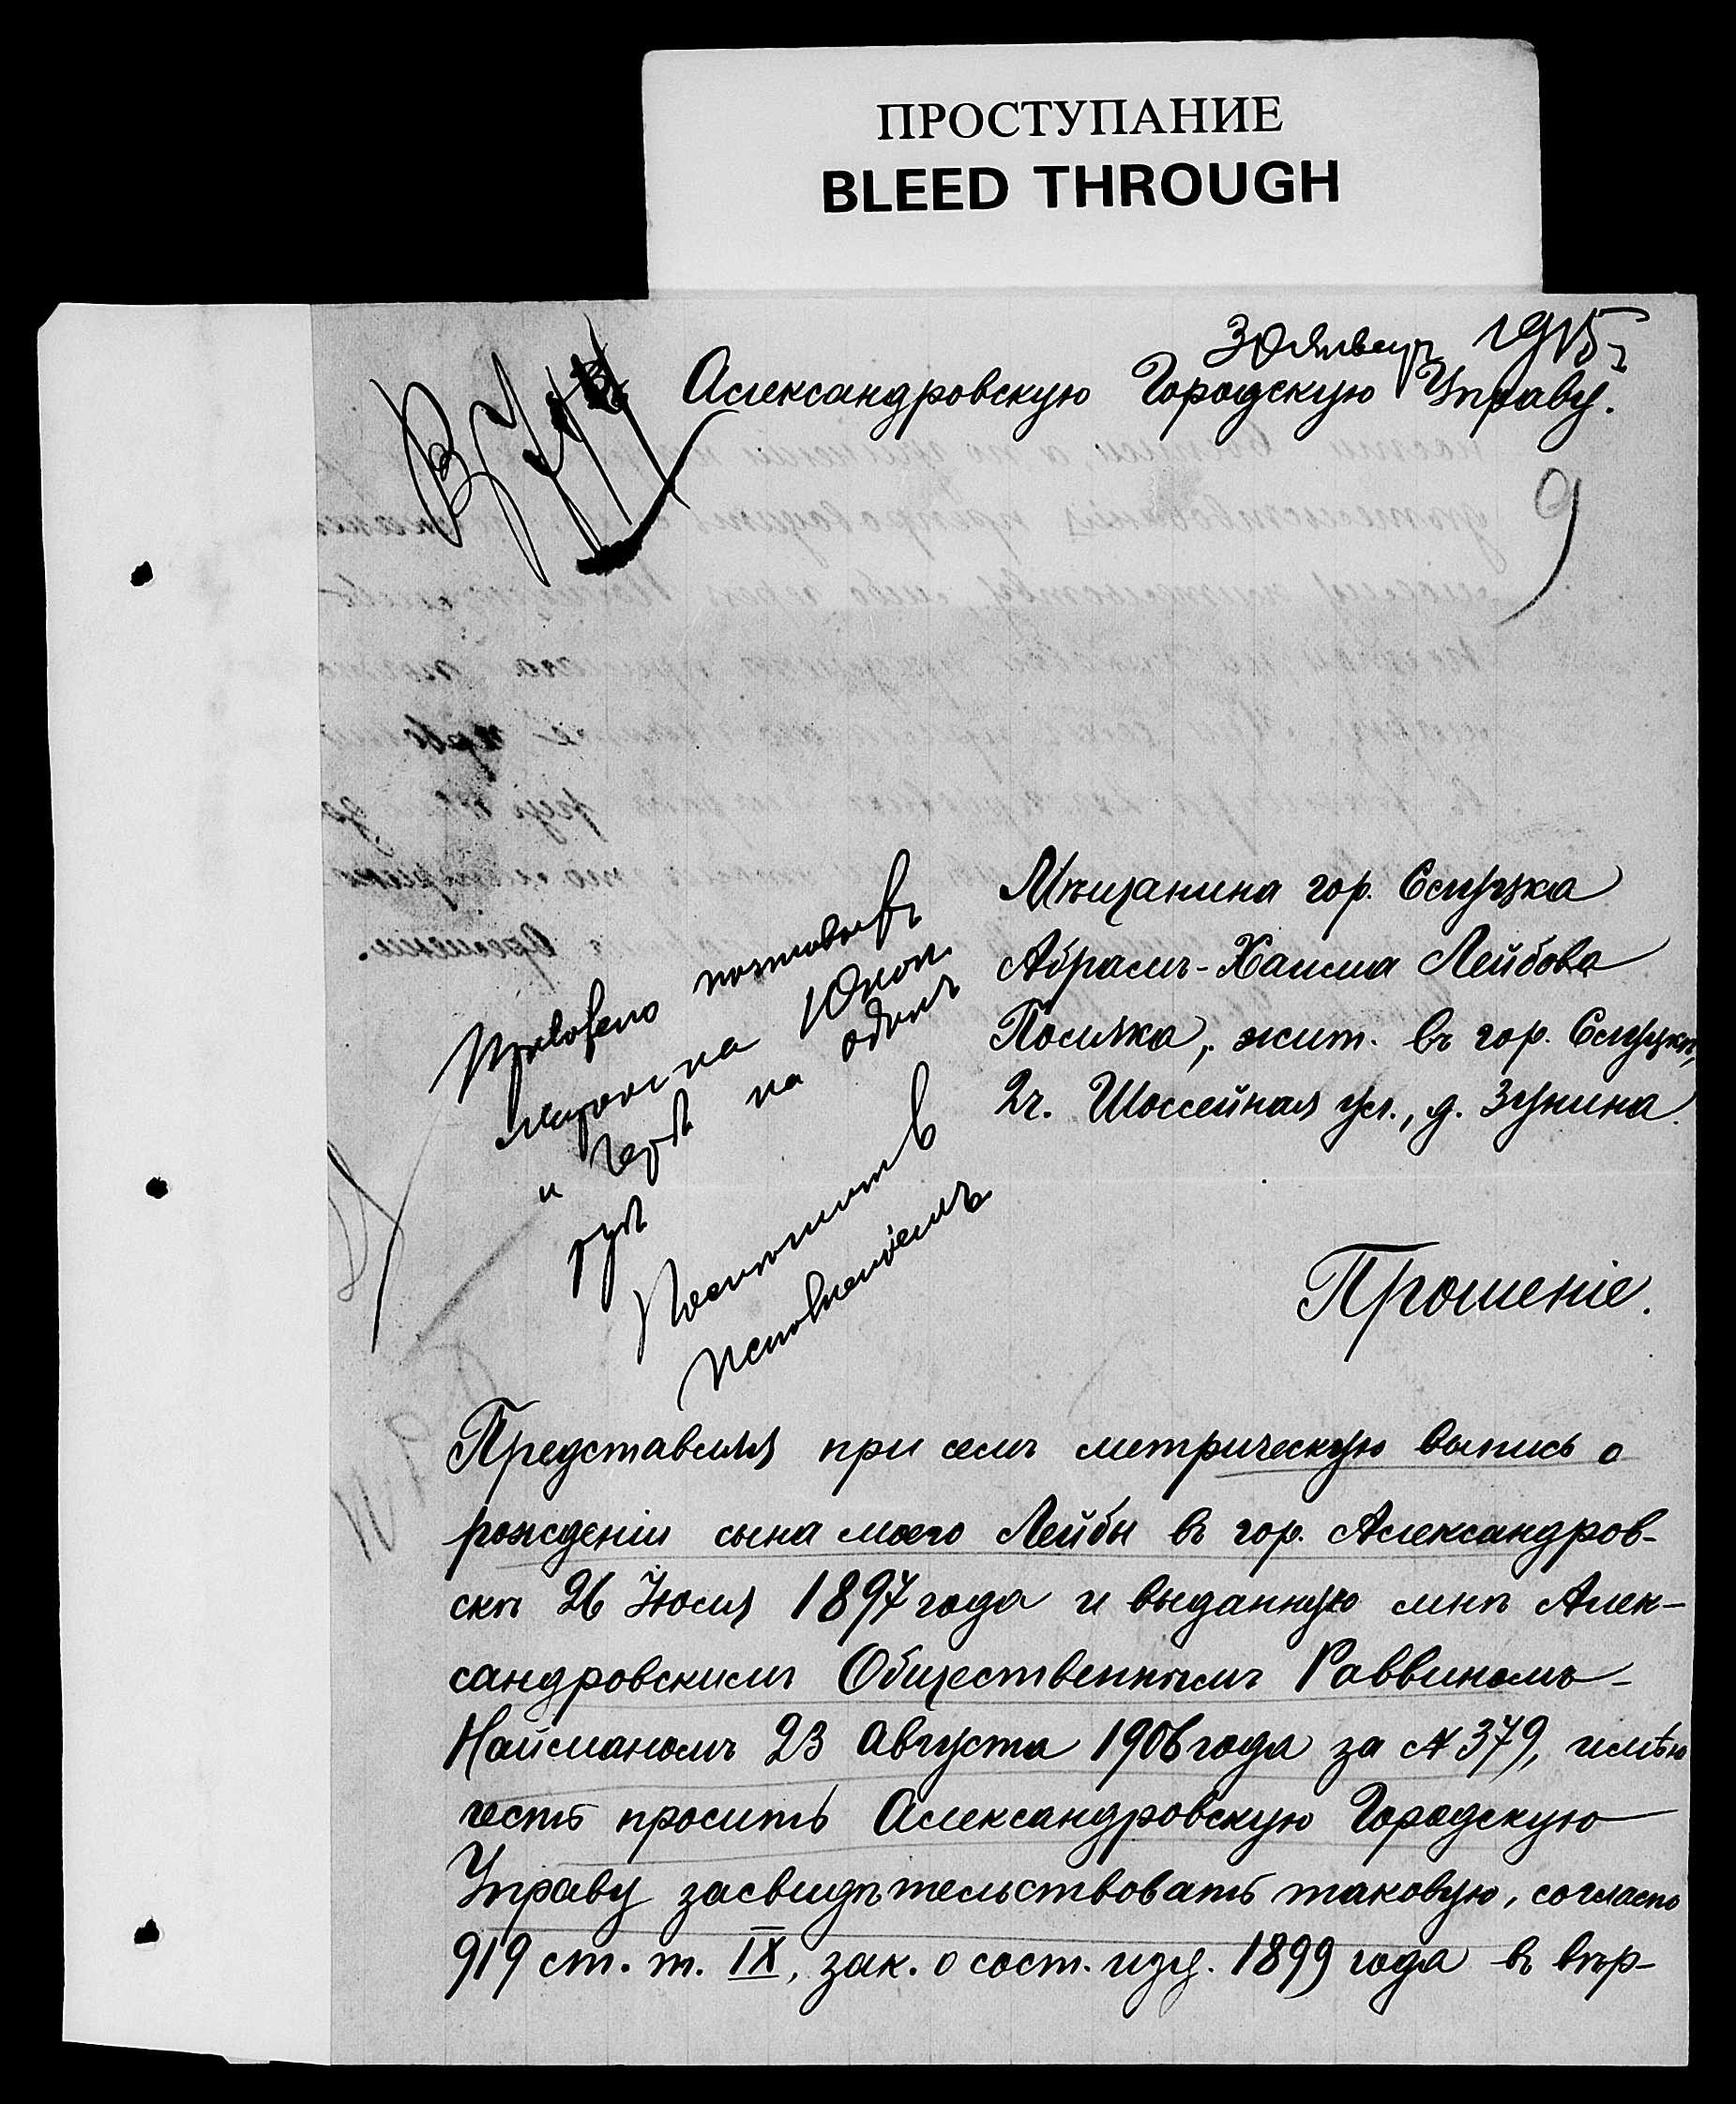 ПРОСТУПАНИЕ
BLEED THROUGH
30 Января 1915 г
Александровскую Городскую Управу.
9
Мѣщанина гор. Слуцка
Абрамъ-Хаима Лейбова
Поляка, жит. въ гор. Слуцкѣ,
2ч. Шоссейная ул., д. Зунина.
Приложено почтовыхъ
марокъ на 10 коп.
и герб на одинъ
руб
Поспѣшить
исполненіемъ
Прошеніе.
Представляя при семъ метрическую выпись о
рожденіи сына моего Лейбы въ гор. Александров-
скѣ 26 Іюля 1897 года и выданную мнѣ Алек-
сандровскимъ Общественнымъ Раввиномъ
Найманомъ 23 Августа 1906 года за № 379, имѣю
честь просить Александровскую Городскую
Управу засвидѣтельствовать таковую, согласно
919 ст. т. IX, зак. о сост. изд. 1899 года въ вѣр-